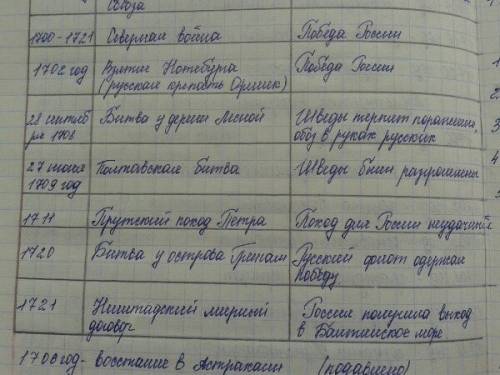 Союза
1700-1721 Северная война Победа России
1702 год Взятие Нотебурга Победа России
(русская крепость Орешек)
28 сентяб Битва у дерни Лесной Шведы терпит поражение,
ря 1708 обоз в руках русских
27 июня Полтавская битва Шведы были разгромлены
1709 год
1711 Прутский поход Петра Поход для России неудачный
1720 Битва у острова Гренгам Русский флот одержал
победу
1721 Ништадский мирный Россия получила выход
договор в Балтийское море
1706 год - восстание в Астрахани (подавлено)